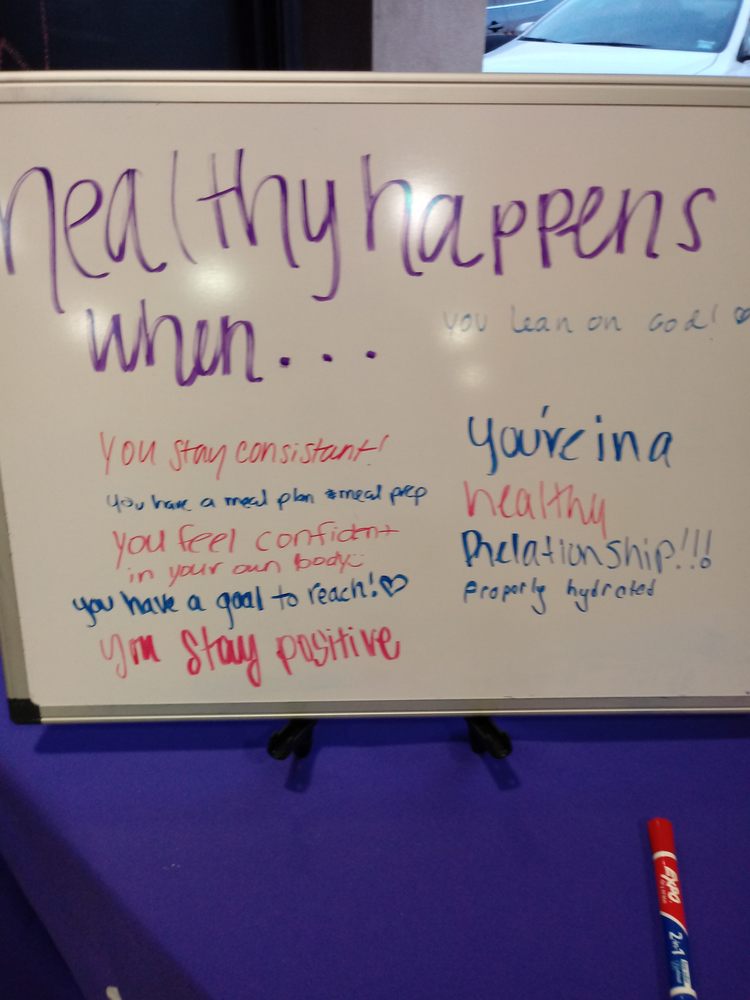 healthy happens
when...
you lean on God! ♡
you stay consistant!
you have a meal plan & meal prep
you feel confident
in your own body
you have a goal to reach! ♡
you stay positive
you're in a
healthy
relationship!!!
Properly hydrated
Expo
2 in 1